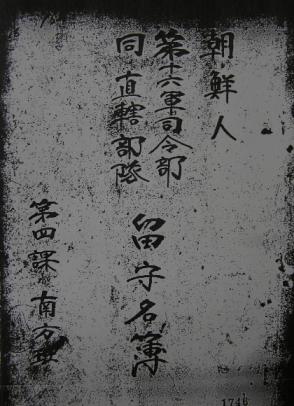 朝鮮人
第十六軍司令部
同直轄部隊
留守名簿
第四課南方班
1746